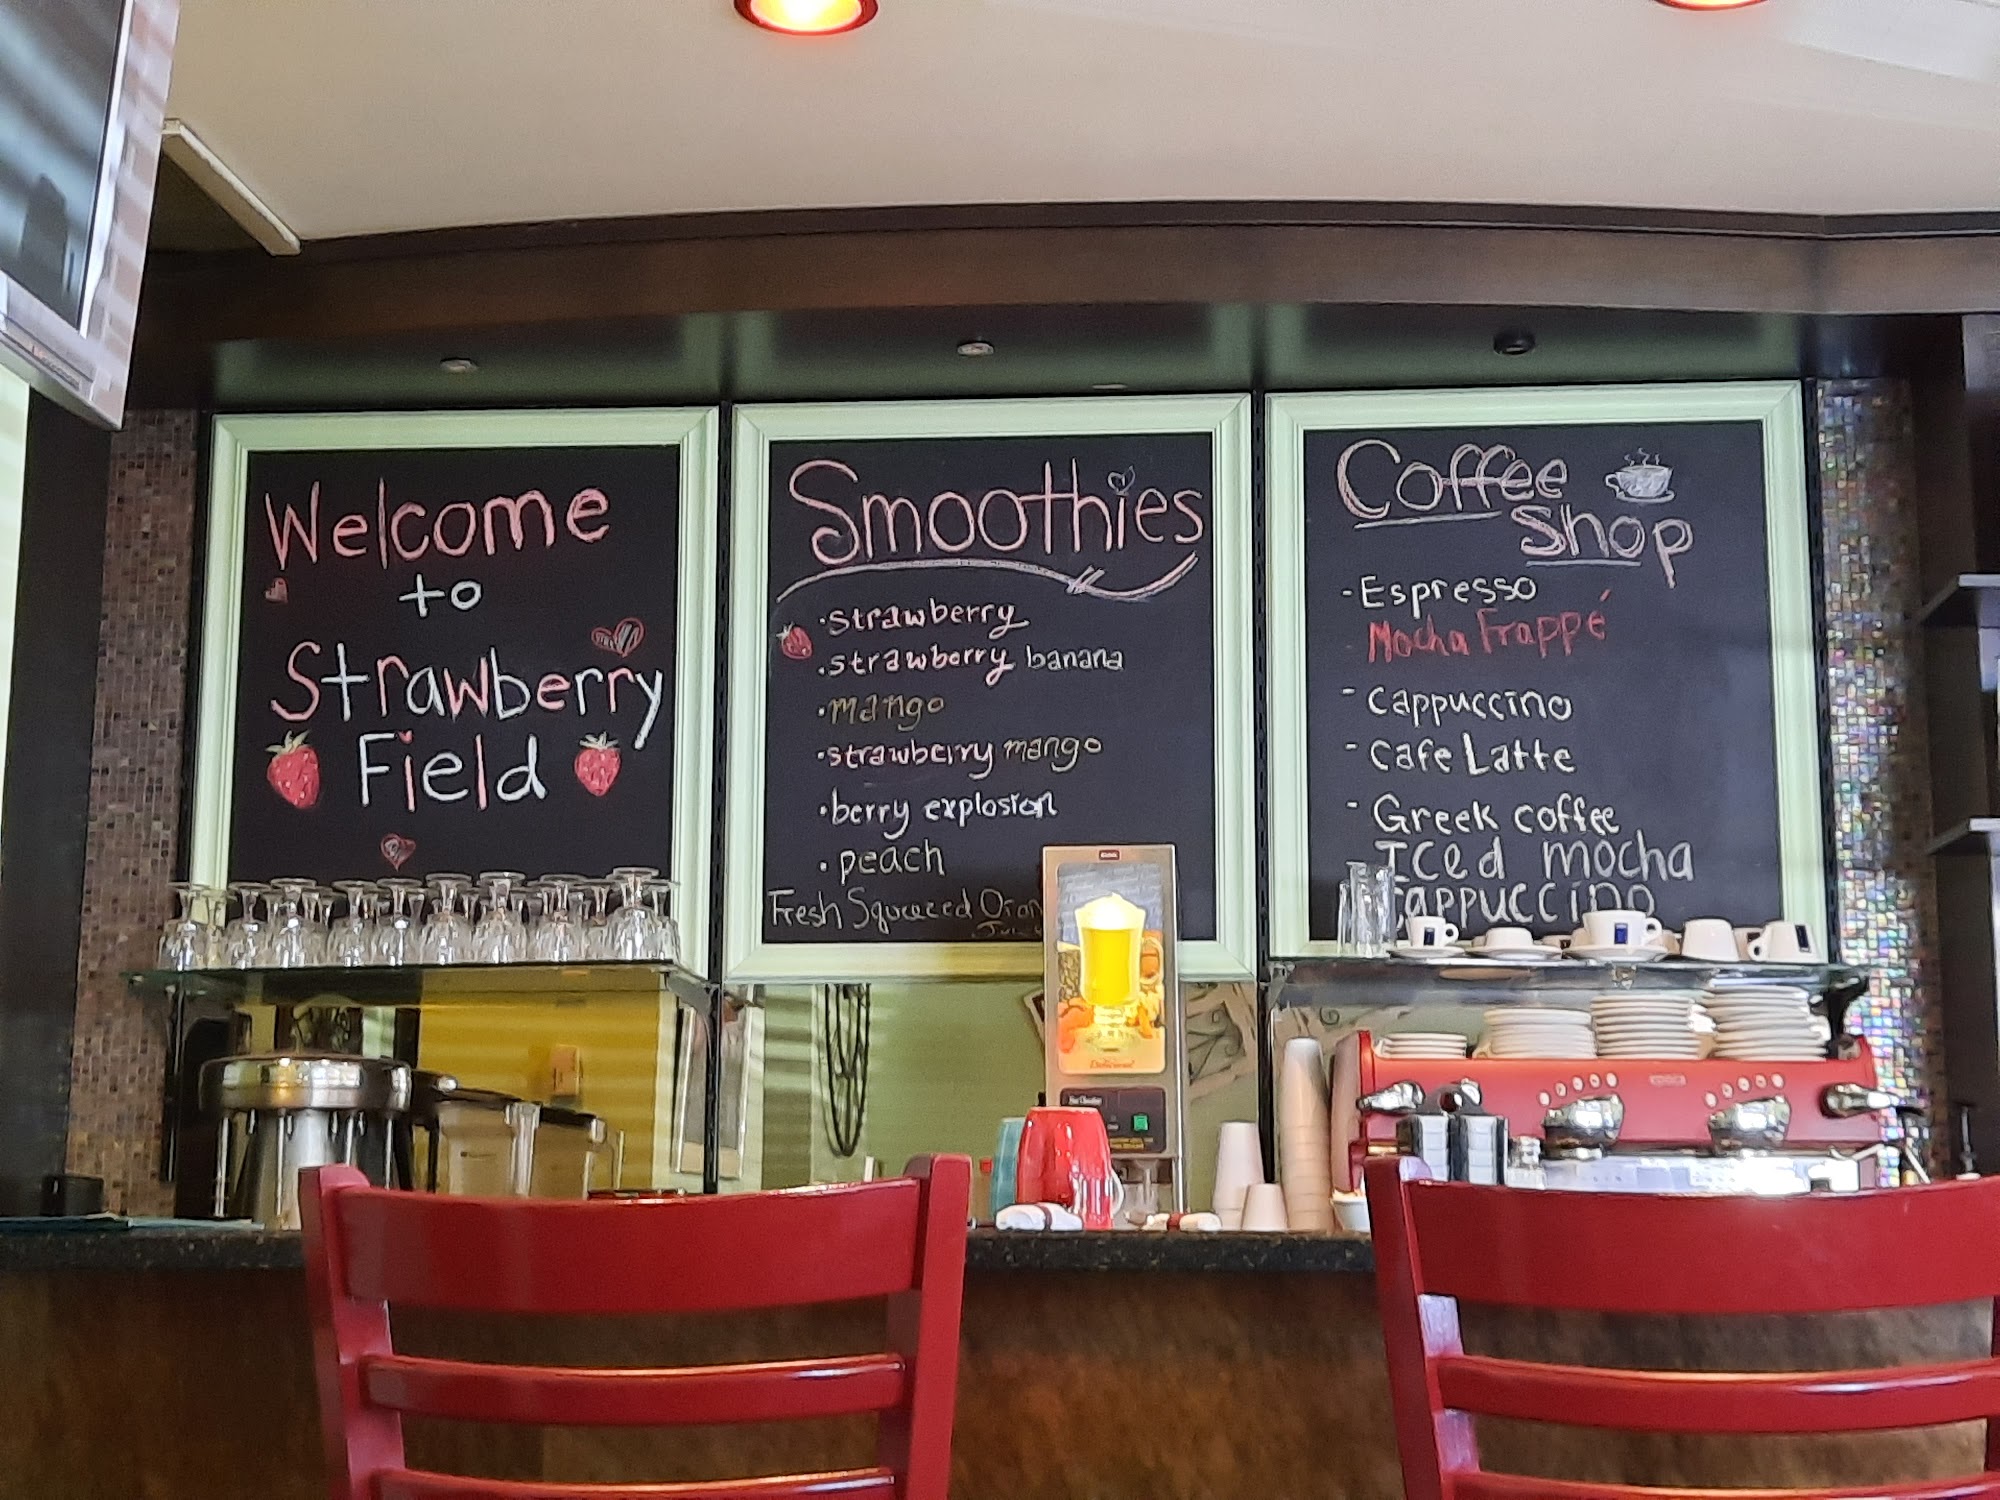 Welcome
to
Strawberry
Field
Smoothies
·strawberry
·strawberry banana
·mango
·strawberry mango
·berry explosion
·peach
Fresh Squeezed
Coffee
Shop
-Espresso
-Mocha Frappé
-cappuccino
-Cafe Latte
-Greek coffee
-Iced mocha
cappuccino
Delicious!
Hot Chocolate